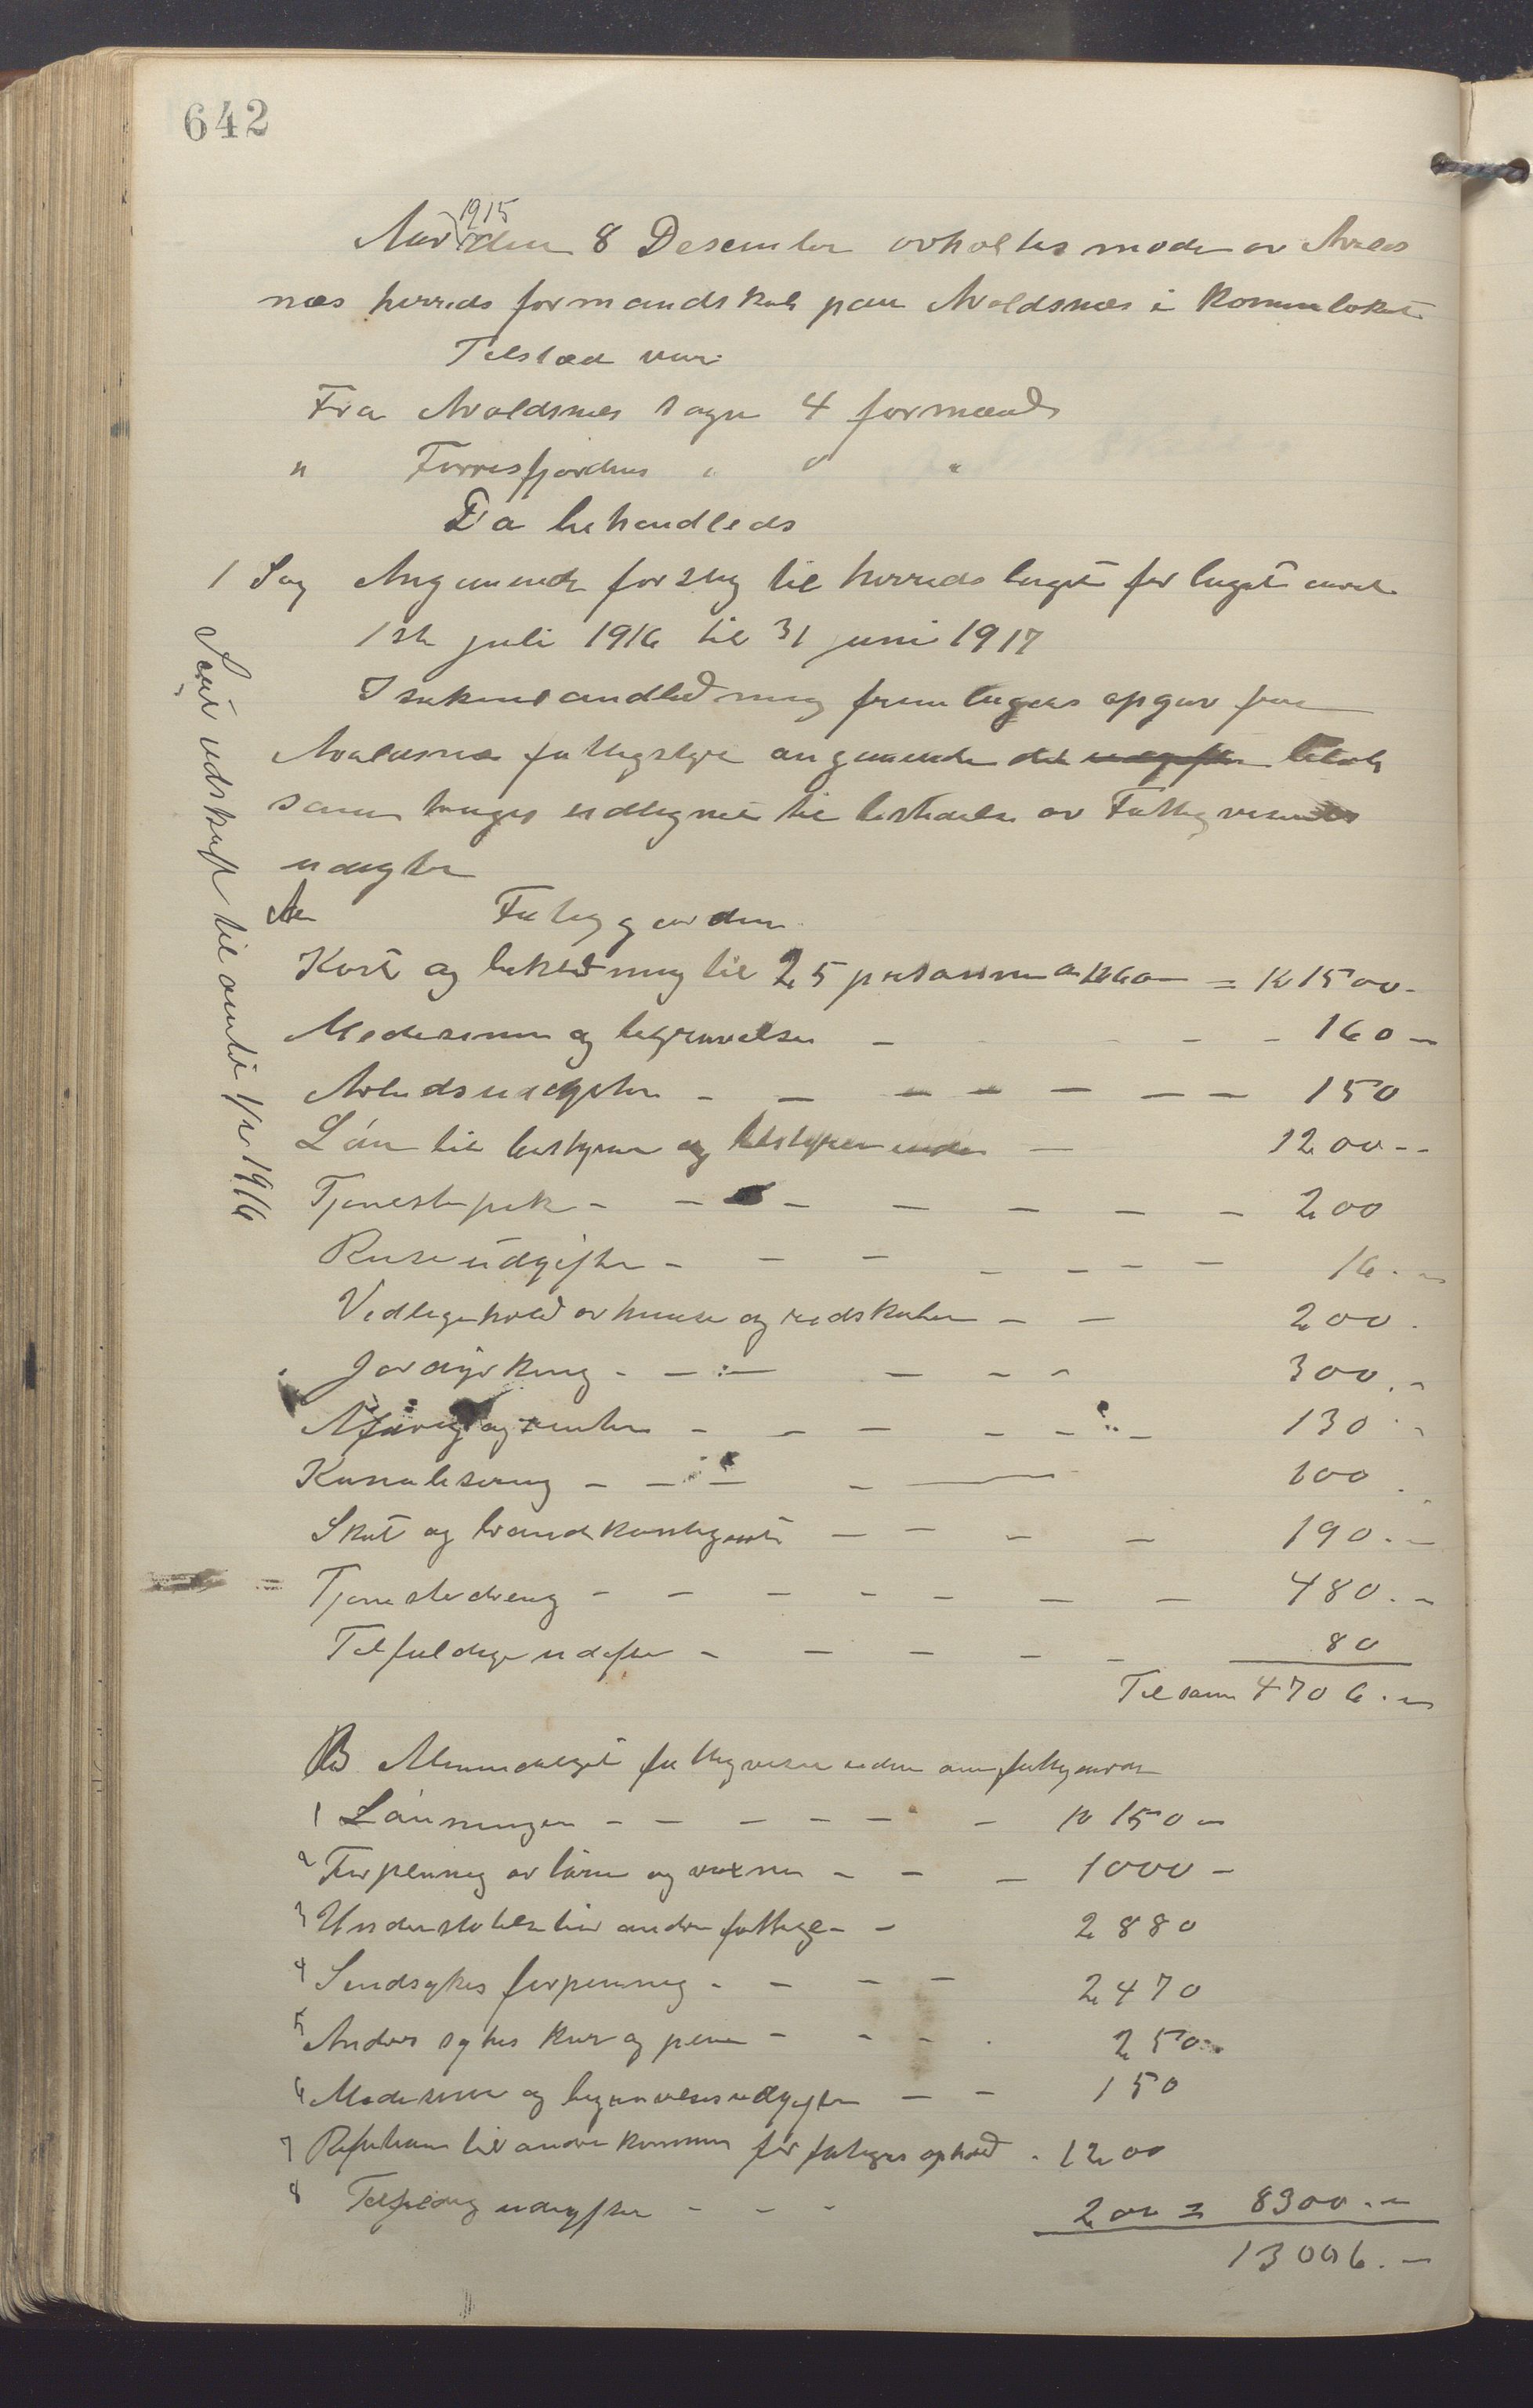 642
1915
Aar den 8 Desember avholtes møde av Avalds
næs herreds formandskab paa Avaldsnæs i Komunelokal
Tilstæd var
Fra Avaldsnes sogn 4 formænd
" Førresfjordens " 0 "
Da behandleds
1 Sag Angaaende forslag til herredsbuget for buget aaret
1ste juli 1916 til 31 juni 1917
I sakens andledning fremlegges opgav fra
Avaldsnæs fattigstyre angaaende det udgifter beløb
som trænges udlignet til bestridelse av Fattigvesenets
udgifter
A Fatiggaarden
Kost og beklædning til 25 personer a kr 60 = kr 1500 -
Medesiner og begravelser - 160 -
Arbeidsudgifter - 150
Løn til bestyrer og bestyrerinde - 1200 - -
Tjenestepike - 200
Reiseudgifter - 16. -
Vedligehold av huuse og redskaber - - 200.
Jorddyrking - 300. -
Afdrag og renter - 130 -
Kanalisering - 100.
Skat og brandkontigent - 190. -
Tjenestedreng - 480. -
Tilfeldige udgifter - 80
Tilsam 4706. -
B Almindeligt fattigvesen uden om fattiggaarden
1 Lønninger - kr 150 -
2 Forpleining av børn og voxne - 1000 -
3 Understøtelse til andre fattige - 2880
4 Sindsykes forpleining - 2470
5 Andres sykes kur og pleie - 250 -
6 Medesiner og begravelsesudgifter - - 150
7 Refution til andre kommuner for fatiges ophold - 1200
8 Tilfeldig udgifter - - - 200 = 8300. -
13006. -
Sent udskrift til amtet 1/2 1916